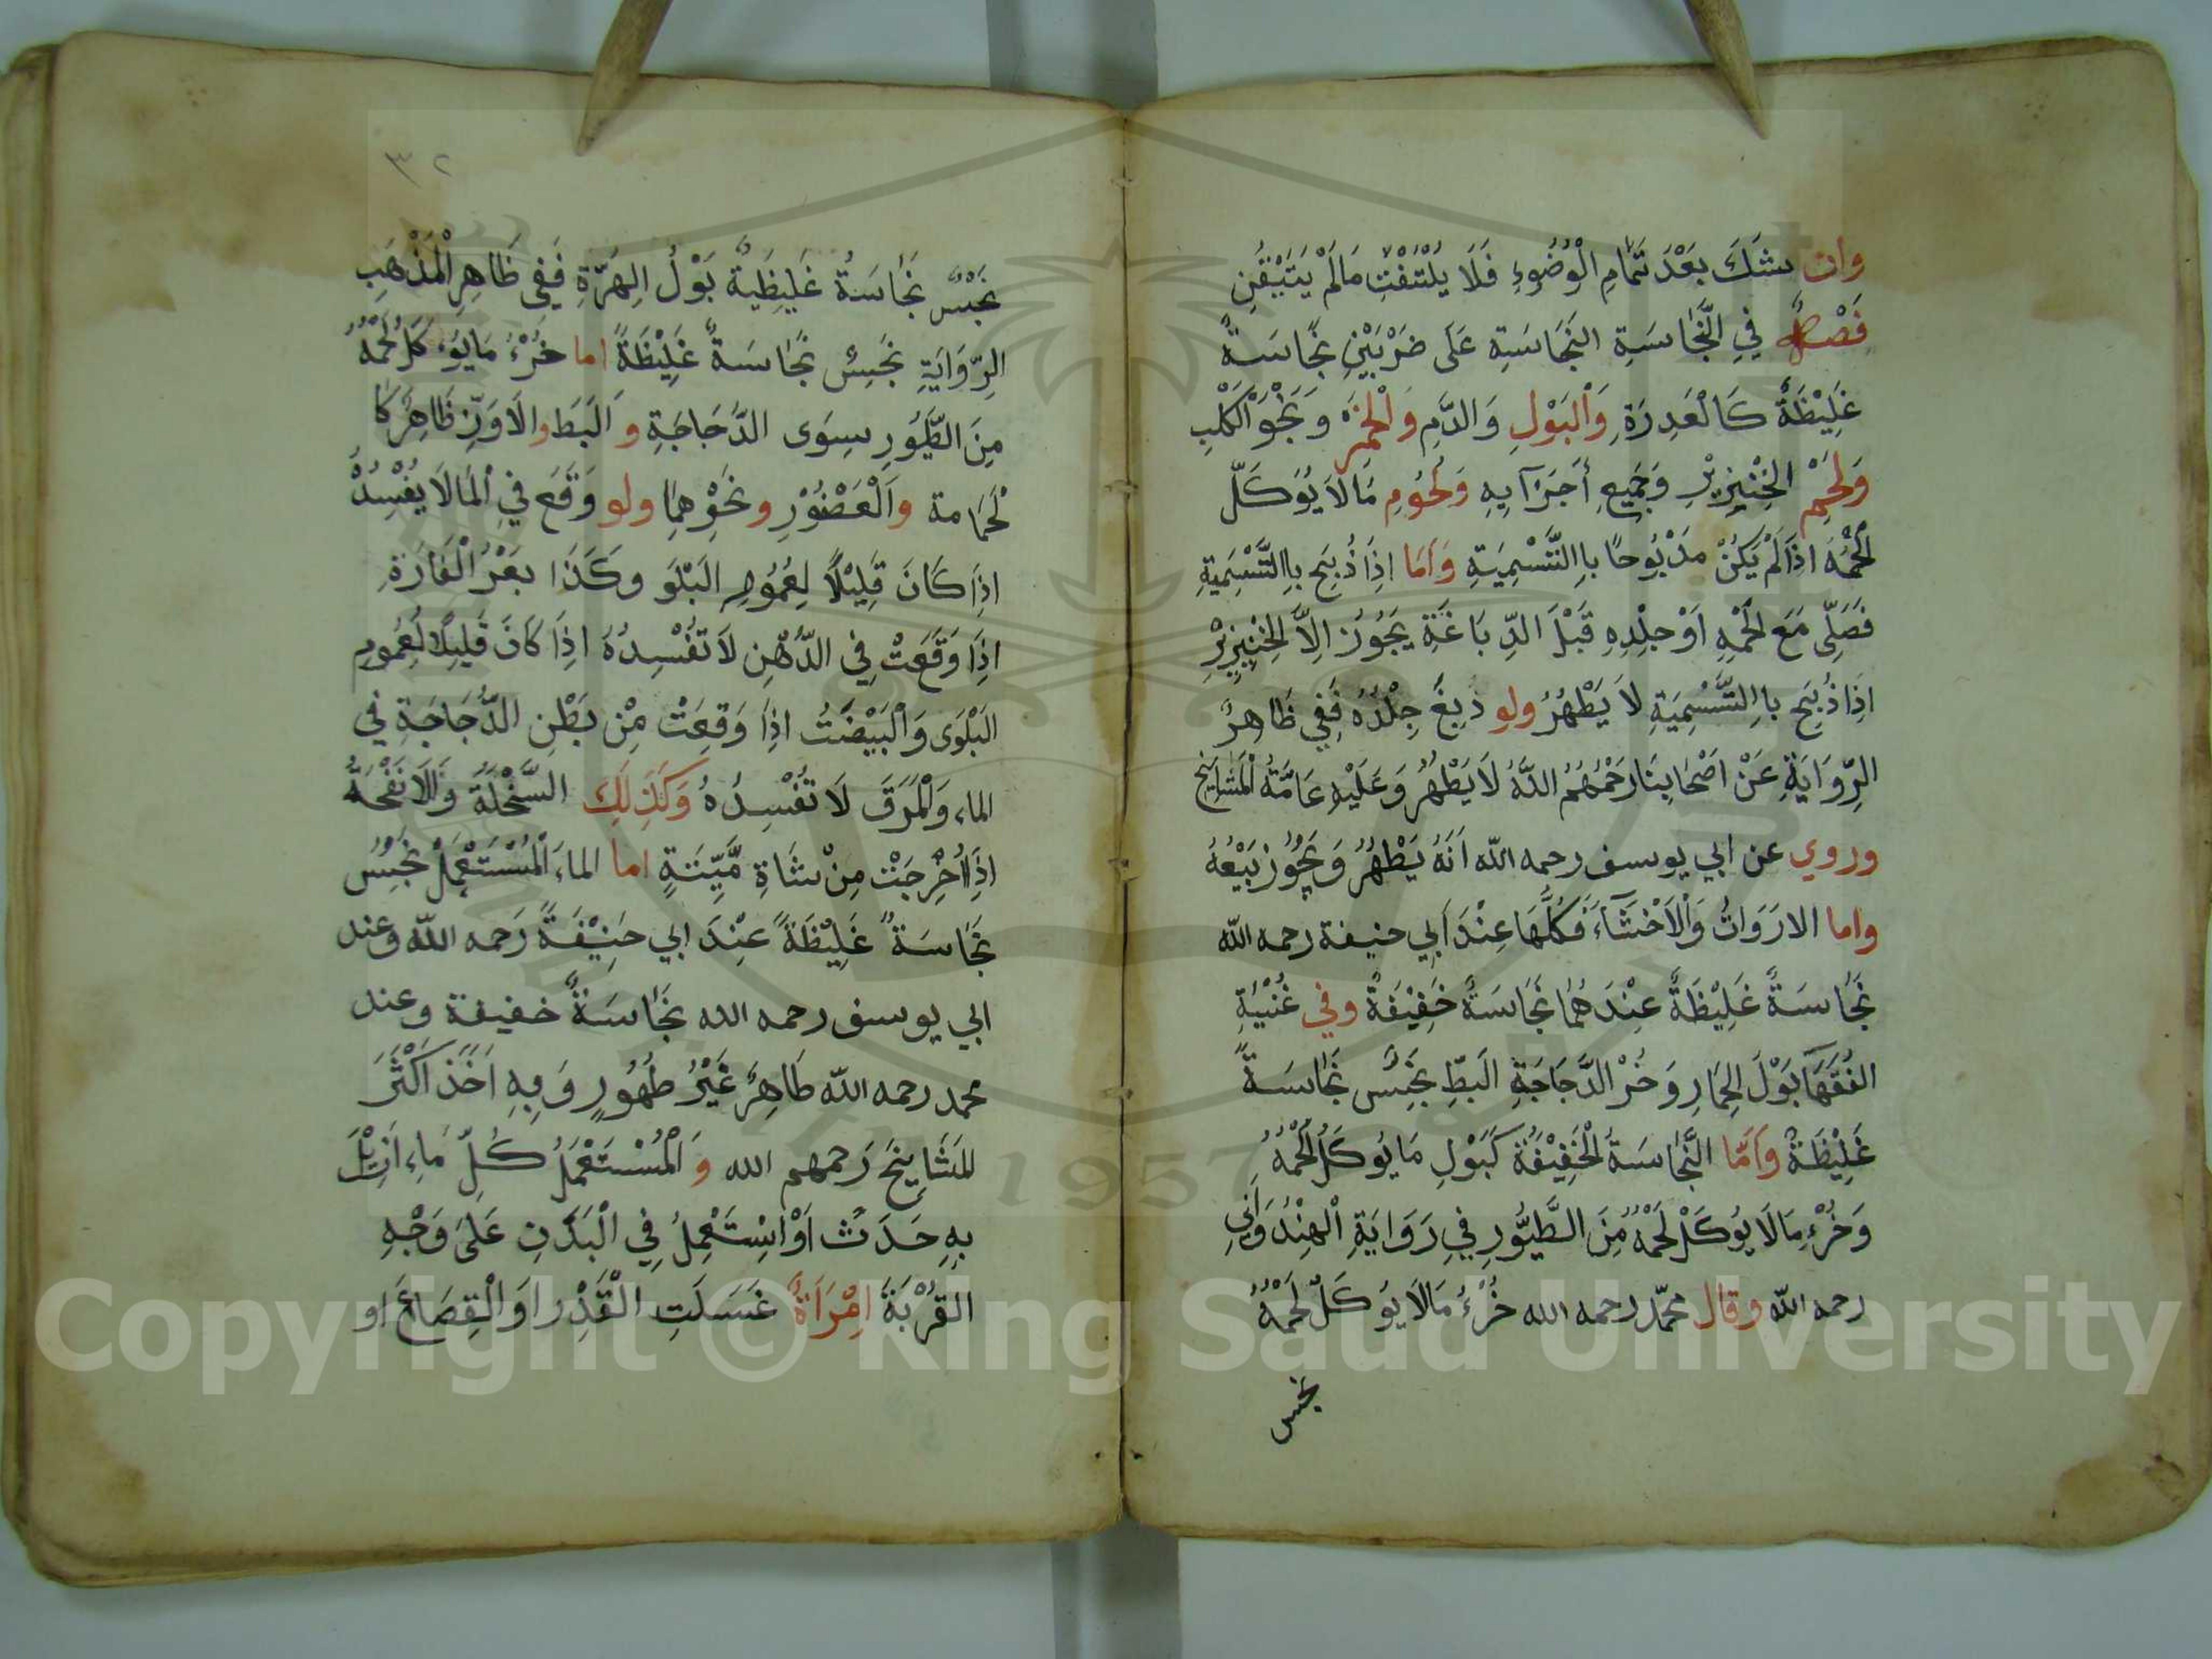 وان شك بَعْدَ تَمَامِ الْوُضُوءِ فَلَا يَلْتَفْتِ مَالَمْ يَتَيَقَّنِ
فَصْلٌ فِي النَّجَاسَةِ النَجَاسَةِ عَلَى ضَرْبَيْنِ نَجَاسَةٌ
غَلِيْظَةٌ كَالْعَدِرَةِ وَالْبَوْلِ وَالدَّمِ وَالْخَمْرِ وَنَجْوَ الْكَلْبِ
وَلَحْمِ الخِنْزِيْرِ وَجَمِيعِ أَجَزَآيِهِ وَلُحُومِ مَالَا يُوكَلّ
لَحْمُهُ اذِاَلَمْ يَكُنْ مَذْبُوحًا بِاالتَّسْمِيَةِ وَاَمَا اذِاَ ذُبِحَ بِاالتَّسْمِيَةِ
فَصَلِّى مَعَ لَحْمِهِ اَوْ جِلْدِهِ قَبْلَ الدِّبَاغَةِ يَجُوزُ اِلاَّ الخِنْزِيْرِ
اذِاَ ذُبِحَ بِاالتَّسْمِيَةِ لاَ يَطْهُرُ ولو دُبِغَ جِلْدُهُ فَفِي ظَاهِرٌ
الرِّوَايَةِ عَنْ اَصْحَابِنَا رَحْمُهُمُ اللَّهُ لَا يَطْهُرُ وَعَلَيْهِ عَامَّةُ الْمَشَايِخِ
وروي عن ابي يوسف رحمه الله اَنَّهُ يَطْهُرُ وَيَجُوُز بَيْعُهُ
واما الارَوَاثُ وَالْاَخْثَآءَ فَكُلَّهَا عِنْدَ اَبِي حنيفة رحمه الله
نَجَاسَةٌ غَلِيْظَةٌ عِنْدَ هُمَا نَجَاسَةٌ خَفِيْفَةٌ وفي غُنْيَةِ
الفُقَهَآ بَوْلَ الحِمَارِ وَخُرْ الدَّجَاجَةِ البَطِّ نَجِسٌ نَجَاسَةً
غَلِيْظَةٌ وَاَمّا النَّجَاسَةُ الْخَفِيْفَةُ كَبَوْلِ مَا يُوكَلُ لَحْمُهُ
وَخُرْءِ مَالَا يُوكَلْ لَحْمُهُ مِنَ الطَّيُّورِ فِي رَوَايَةِ الْهِنْدُوَانِي
رحمه الله وقال محمّد رحمه الله خُرْءُ مَالَا يُوكَلُ لَحْمُهُ
نجس
٣٢
نَجَسٌ نَجَاسَةٌ غَلِيظَيةٌ بَوْلُ الِهَرَّةِ فَفِى ظَاهِرِ الْمَذْهَبِ
الرِّوَايَةِ نَجَسٌ نَجَاسَةٌ غَلِيْظَةً اما خُرْءُ مَايُوءكَلُ لَحْمُهُ
مِنَ الطَّيُورِ سِوَى الدَّجَاجَةِ وَالبَطِ والاوَزِّ ظَاهِرٌ كَا
لْحَمَامة وَالْعَصْفُوْرِ ونَحْوِهِمَا ولو وَقَعَ فِي الْمَا لَا يُفْسِدُهُ
اذِاَ كَانَ قَلِيْلاً لِعُمُومِ البَلْوَ وكَذَا بَعْرُ الْفَارَةِ
اذِاَ وَقَعَتْ فِي الدُّهْنِ لاَ تُفْسِدُهُ اذِاَ كَانَ قَلِيلاً لِعُمومِ
البَلْوَى وَالْبَيْضَتُ اذِاَ وَقَعَتْ مِنْ بَطْنِ الدَّجَاجَةِ فِي
الماءِ وَالْمَرَقَ لَا تُفْسِدُهُ وَكَذَلِكَ السَّخْلَةُ وَالاَنْفَحَةُ
اذِاَ اُخْرِجَتْ مِنْ شَاةِ مَّيِّتَةٍ اما الماءَ الْمُسْتَعْمَلْ نَجَسٌ
نَجَاسَةٌ غَلِيْظَةً عِنْدَ ابي حَنِيْفَةَ رَحمه اللّه وعند
ابي يوسف رحمه الله نَجَاسَةٌ خفيفة وعند
محمد رحمه اللّه طَاهِرٌ غَيْرُ طَهُورٍ وَبِهِ اَخَذَ اَكْثَرَ
المَشَايِخَ رَحمهم الله وَالْمُسْتَعْمَلُ كُلِّ مَاءِ اُزِيْلَ
بِهِ حَدَثٌ اَوْ اسْتَعْمِلُ فِي الْبَدَنِ عَلَى وَجْهِ
القُرْبَةَ اِمْرَاَةٌ غَسَلَتِ الْقَدْرِ اوَالْقِصَاعَ او
Copyright © King Saud University
1957